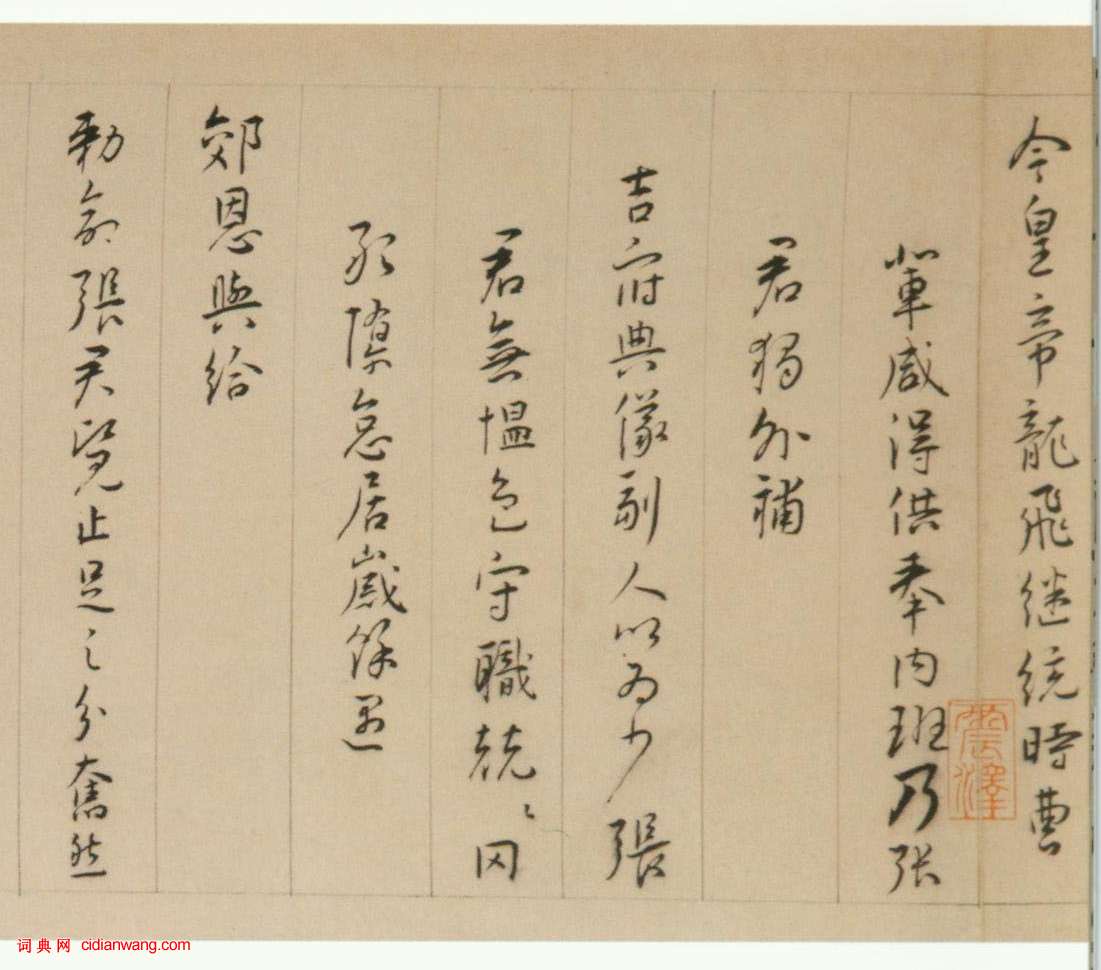 今皇帝龍飛继统時曹
輩咸得供奉内班乃张
君獨外補
吉府典儀副人以為少張
君無愠色守職兢〻罔
敢隳怠居歲餘遇
郊恩與給
勅命張君覽止足之分奮然
震澤
词典网 cidianwang.com